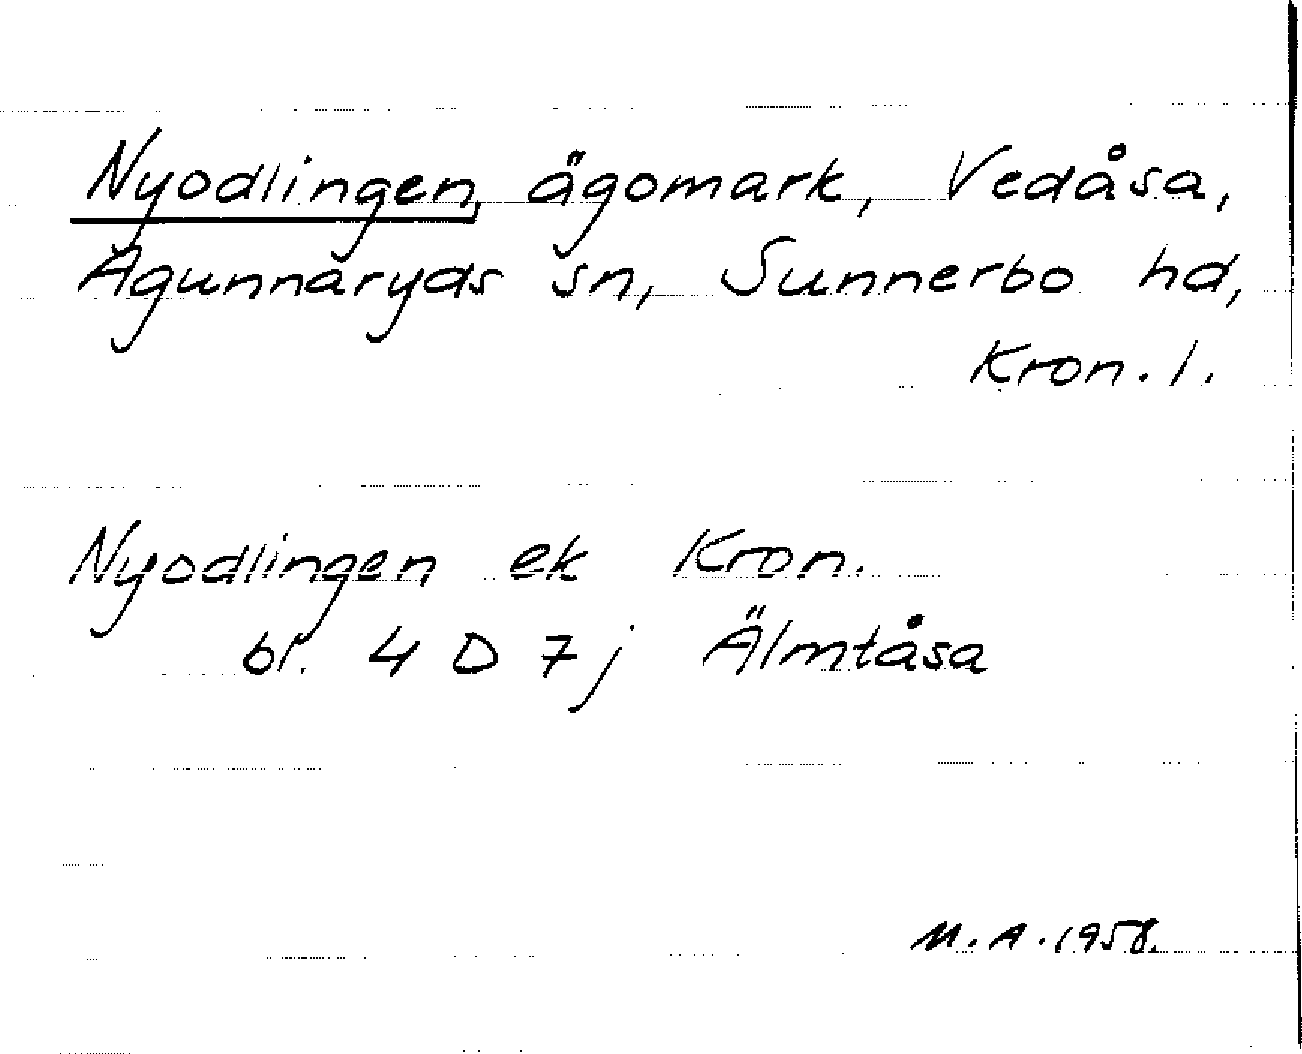 Nyodlingen, ägomark, Vedåsa,
Agunnaryds sn, Sunnerbo hd,
Kron. l.
Nyodlingen ek Kron.
bl. 4 D 7j Älmtåsa
M.A. 1958.